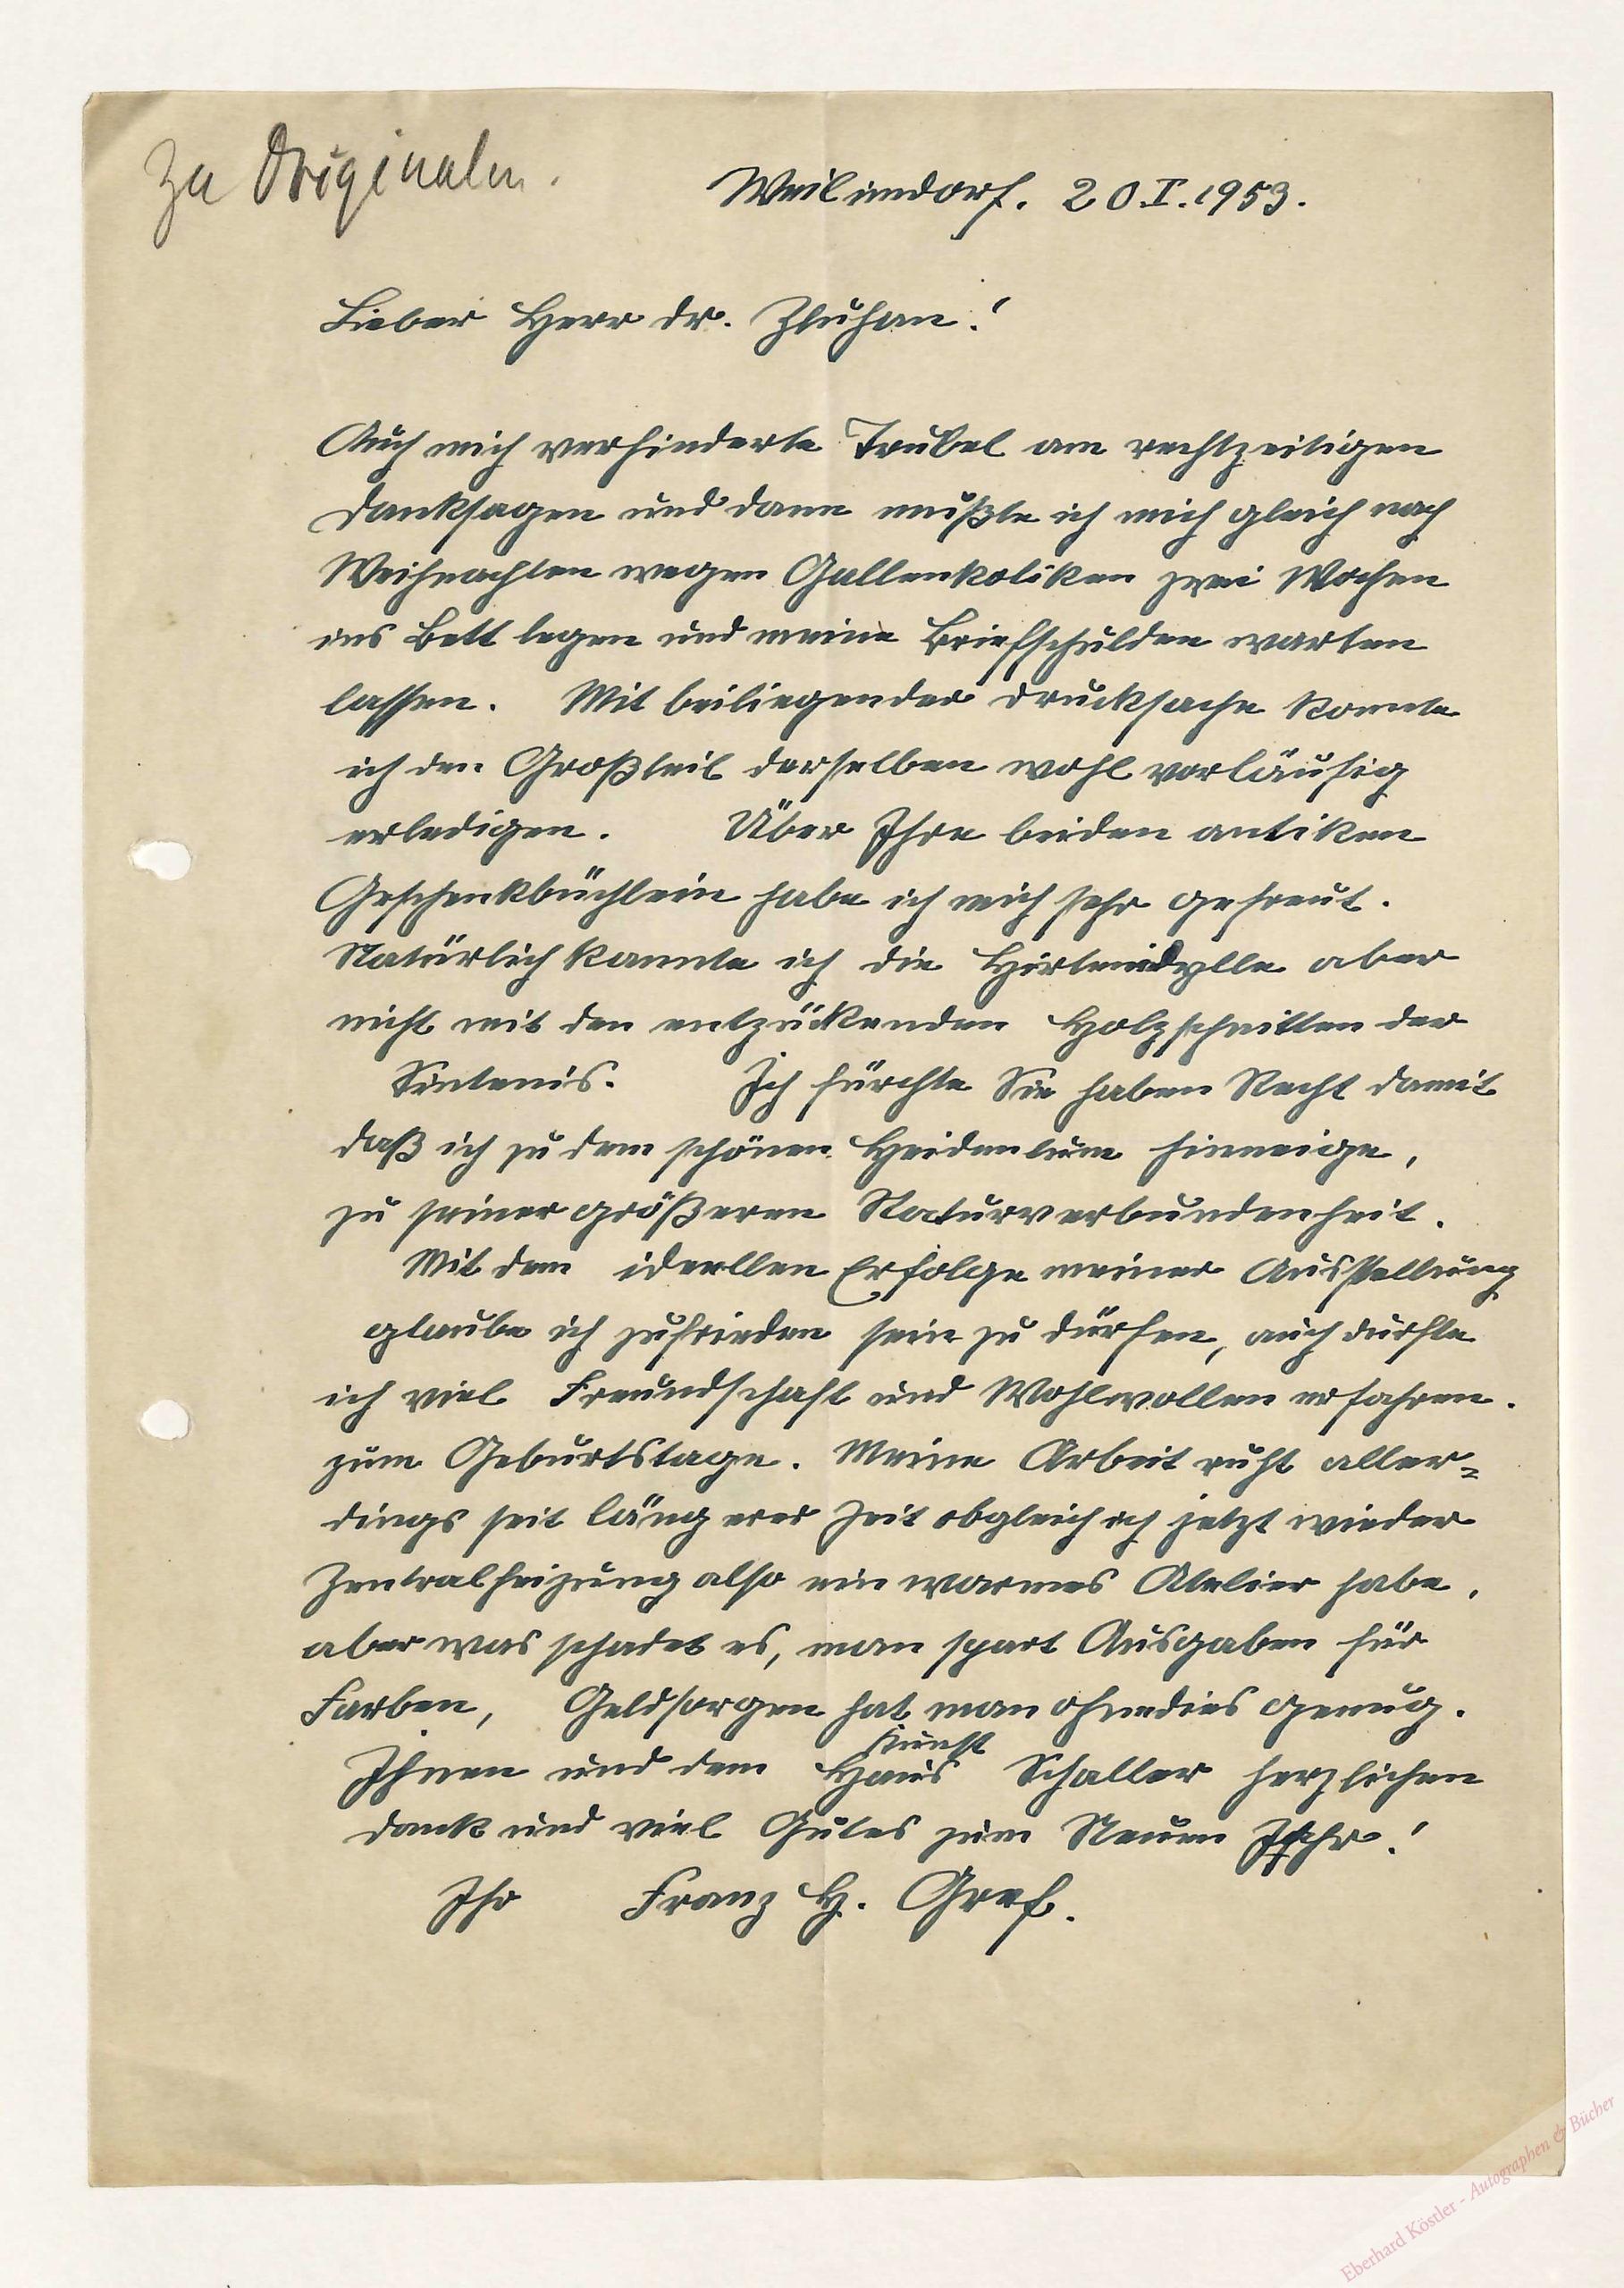 Zu Originalen.
Weil im dorf. 20.I.1953.
Lieber Herr Dr. Zluhan!
Auch mich verhinderte Trubel am rechtzeitigen
Danksagen und dann mußte ich mich gleich nach
Weihnachten wegen Gallenkoliken zwei Wochen
ins Bett legen und meine Briefschulden warten
lassen. Mit beiliegender Drucksache konnte
ich den Großteil derselben wohl vorläufig
erledigen. Über Ihre beiden antiken
Geschenkbüchlein habe ich mich sehr gefreut.
Natürlich kannte ich die Hirtenidylle aber
nicht mit den entzückenden Holzschnitten der
Sintenis. Ich fürchte Sie haben Recht damit
daß ich zu dem schönen Heidentum hinneige,
zu seiner größeren Naturverbundenheit.
Mit dem ideellen Erfolge meiner Ausstellung
glaube ich zufrieden sein zu dürfen, auch durfte
ich viel Freundschaft und Wohlwollen erfahren.
zum Geburtstage. Meine Arbeit ruht aller=
dings seit längerer Zeit obgleich ich jetzt wieder
Zentralheizung also ein warmes Atelier habe,
aber was schadet es, man spart Ausgaben für
Farben, Geldsorgen hat man ohnedies genug.
Kunst
Ihnen und dem Haus Schaller herzlichen
Dank und viel Gutes zum Neuen Jahr!
Ihr Franz H. Gref.
Eberhard Köstler - Autographen & Bücher